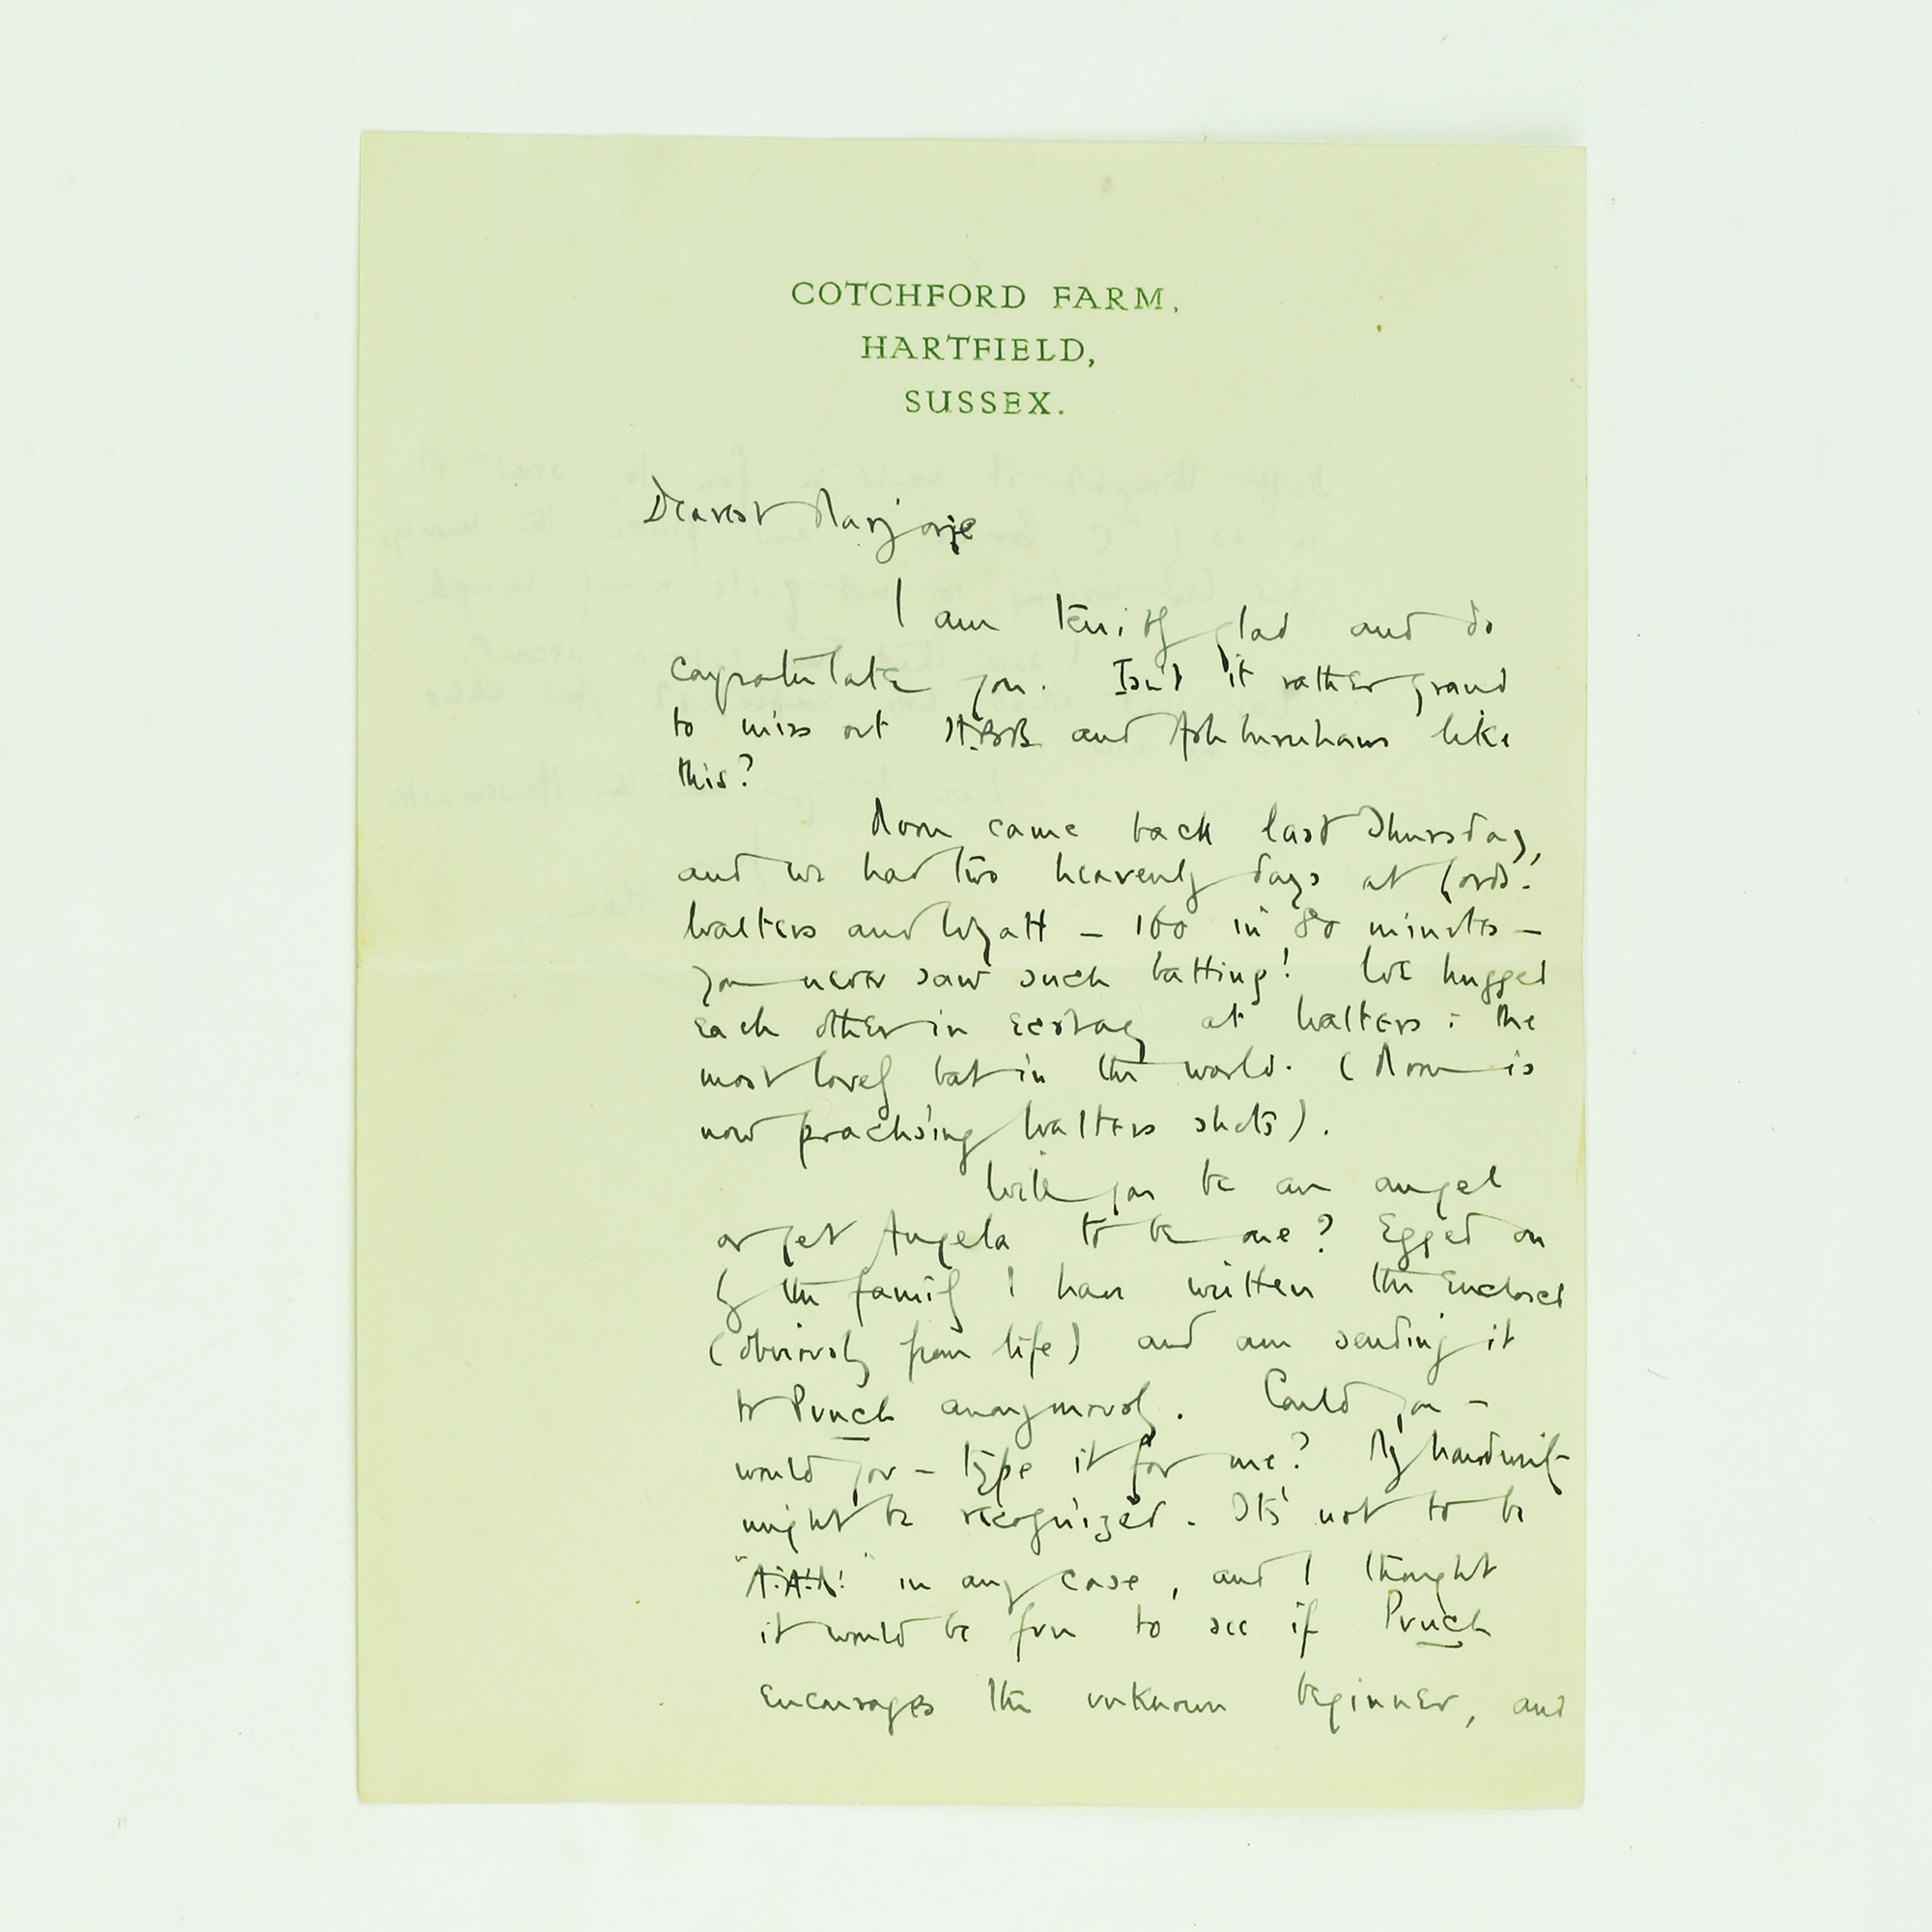 COTCHFORD FARM,
HARTFIELD,
SUSSEX.
Dearest Marjorie
I am terribly glad and do
congratulate you. Isn't it rather grand
to miss out H.BB and Ashburnhams like
this?
Moon came back last Thursday,
and we had two heavenly days at Lords.
Walters and Wyatt – 160 in 80 minutes –
you never saw such batting! We hugged
each other in ecstasy at Walters : the
most lovely bat in the world. (Moon is
now practising Walters shots).
Will you be an angel
or get Angela to be one? Egged on
by the family I have written the enclosed
(obviously from life) and am sending it
to Punch anonymously. Could you –
would you – type it for me? My handwriting
might be recognized. Its' not to be
"A.A.M." in any case, and I thought
it would be fun to see if Punch
encourages the unknown beginner, and